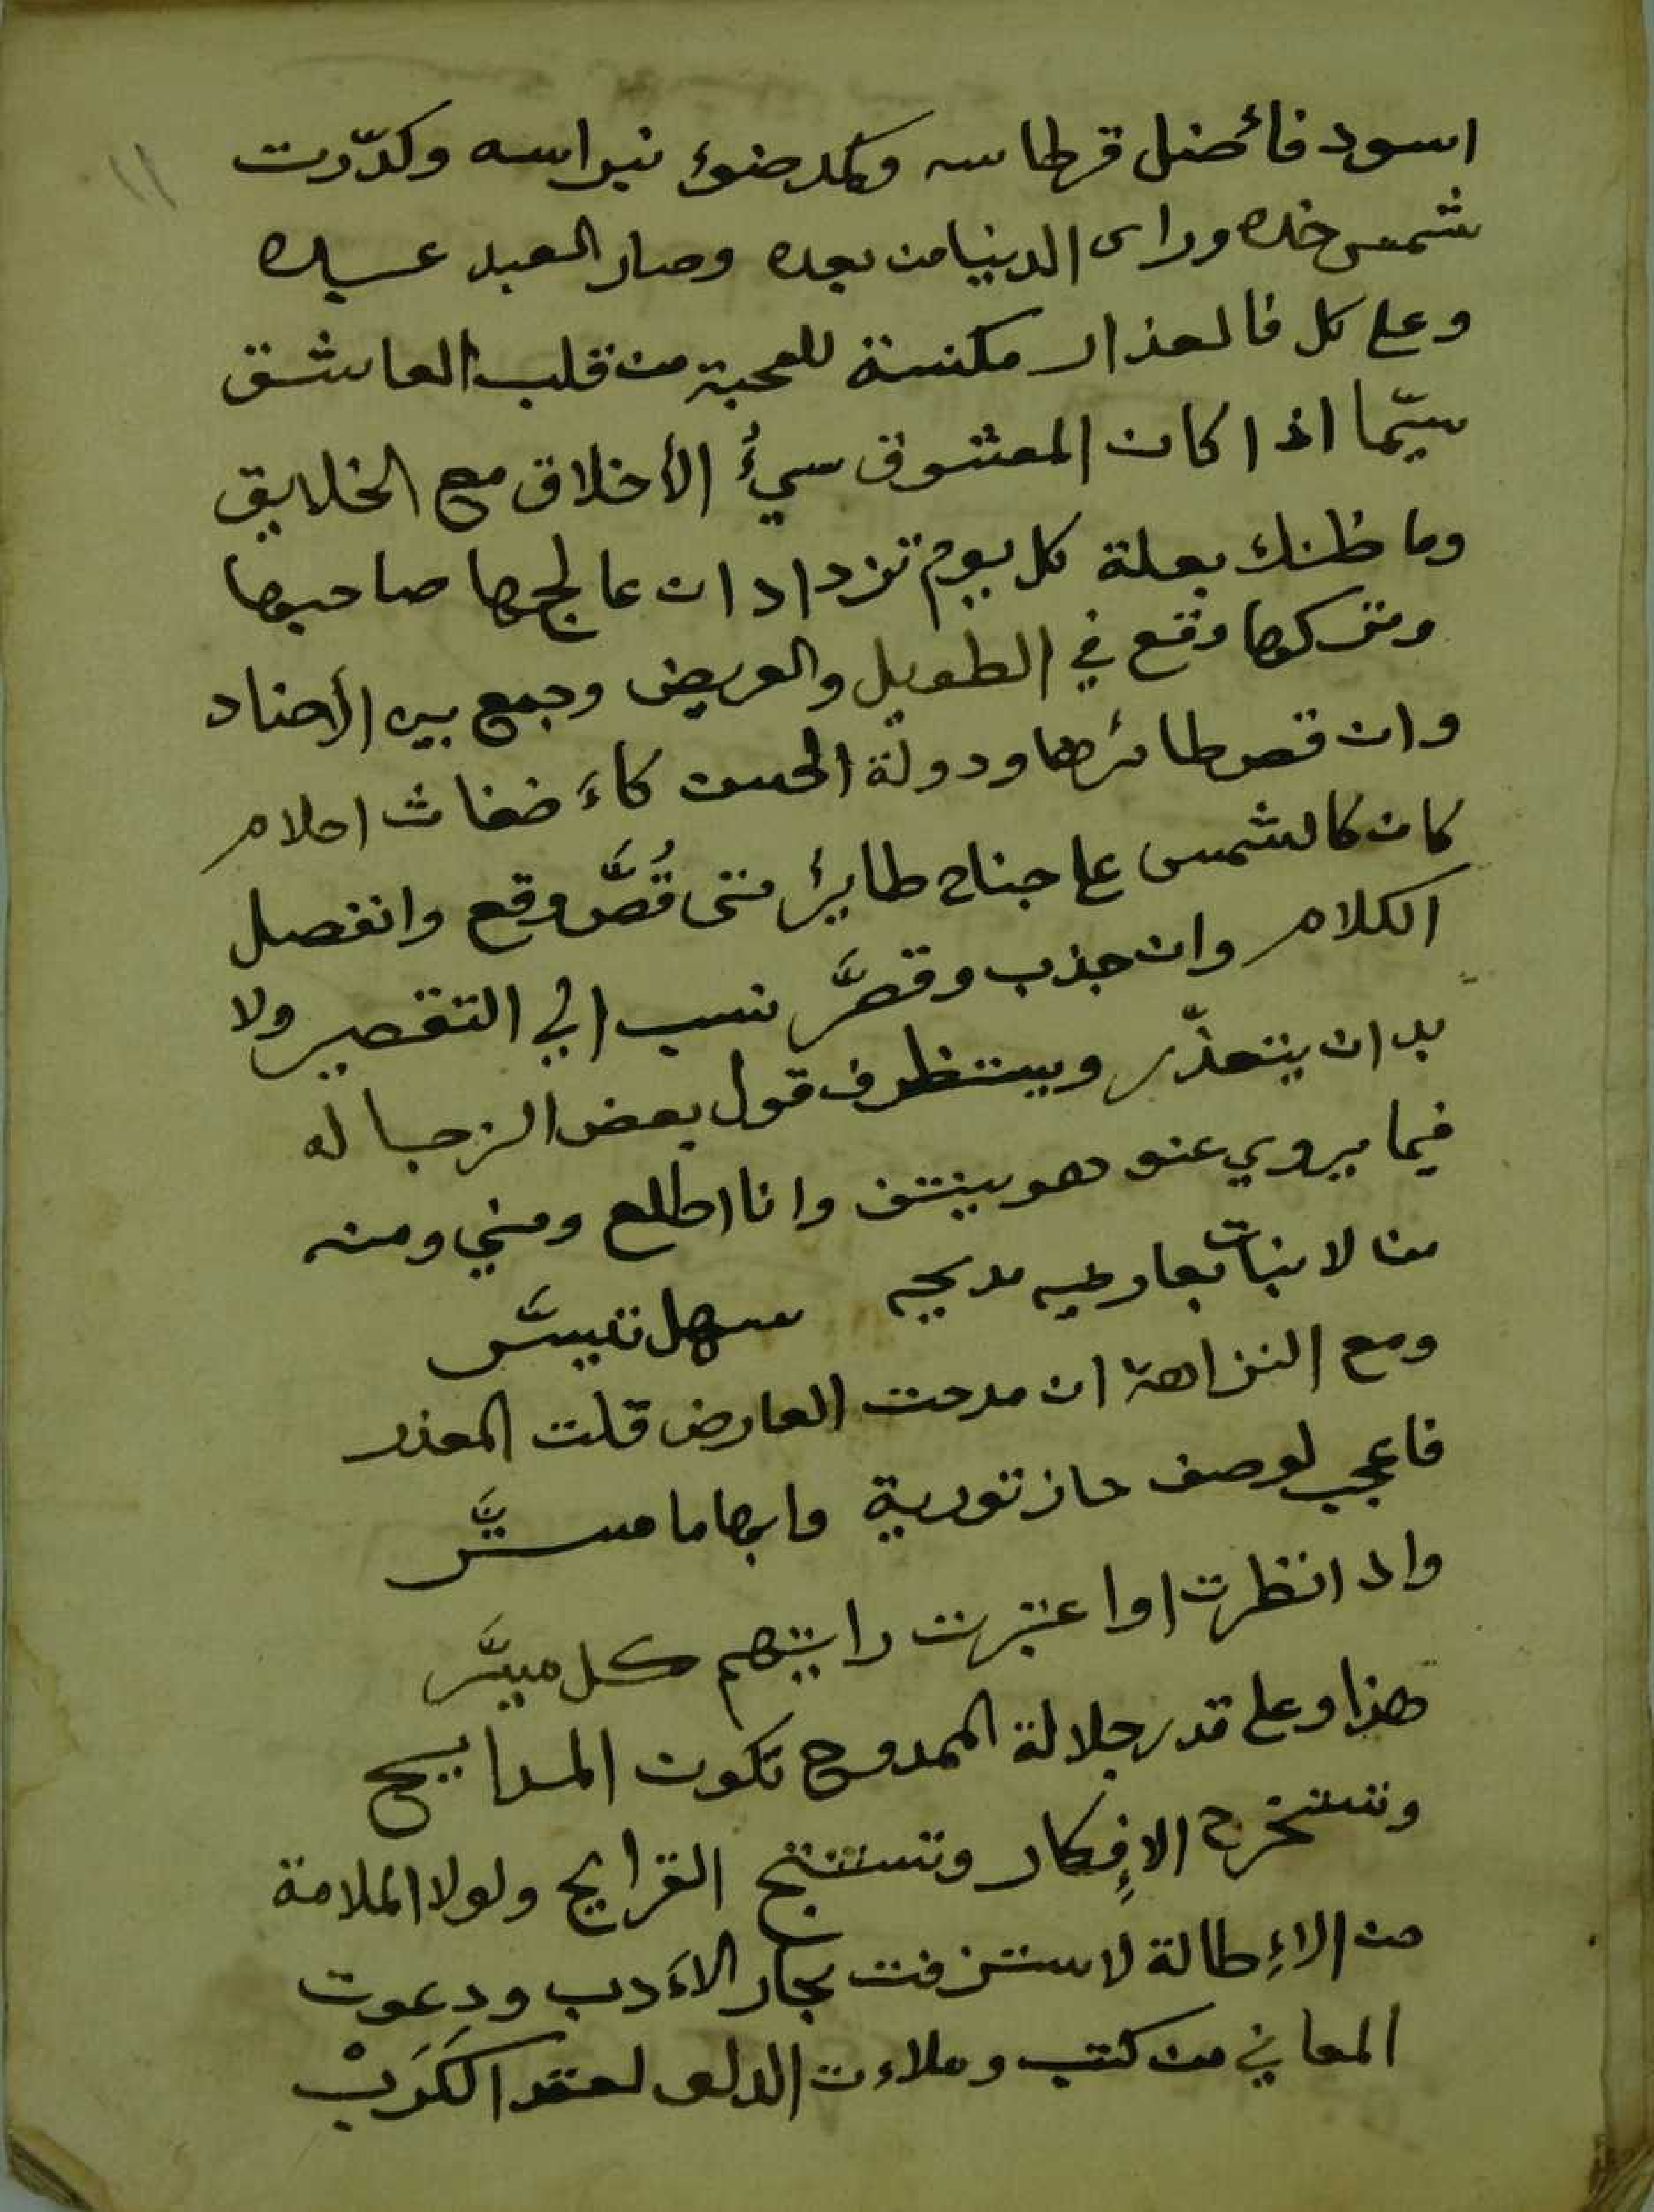 ١١
اسود فأضل قرطاسه وكمد ضوء نبراسه وكدّرت
شمس خده وراى الدنيا من بعده وصار العبد عسيده
وعلى كل فالعذار مكنسة للمحبة من قلب العاشق
سيّما اذا كان المعشوق سيءُ الأخلاق مع الخلايق
وما ظنك بعلة كل يوم تزداد ان عالجها صاحبها
وتركها وقع في الطويل والعريض وجمع بين الأضاد
وان قص طائرها ودولة الحسن كأضغاث احلام
كان كالشمس على جناح طاير متى قُصَّ وقع وانفصل
الكلام وان جذب وقصَّر نسب الي التقصير ولا
بد ان يتعذّر ويستظرف قول بعض الزجاله
فيما يروي عنو هو ينتف وانا اطلع ومني ومنه
منا لا نبات بعارضيه مديحه سهل تيسَّر
ومع النزاهة ان مدحت العارض قلت المعذر
فاعجب لوصف حاز تورية وابهاما مستَّر
واذا نظرت او اعتبرت رايتهم كل ميسَّر
هذا وعلى قدر جلالة الممدوح تكون المدايح
وتستخرج الإفكار وتستنتج القرايح ولولا الملامة
من الإطالة لاستنزفت بحار الأدب ودعوت
المعاني من كتب وملاءت الدلو لعقد الكَرَبْ